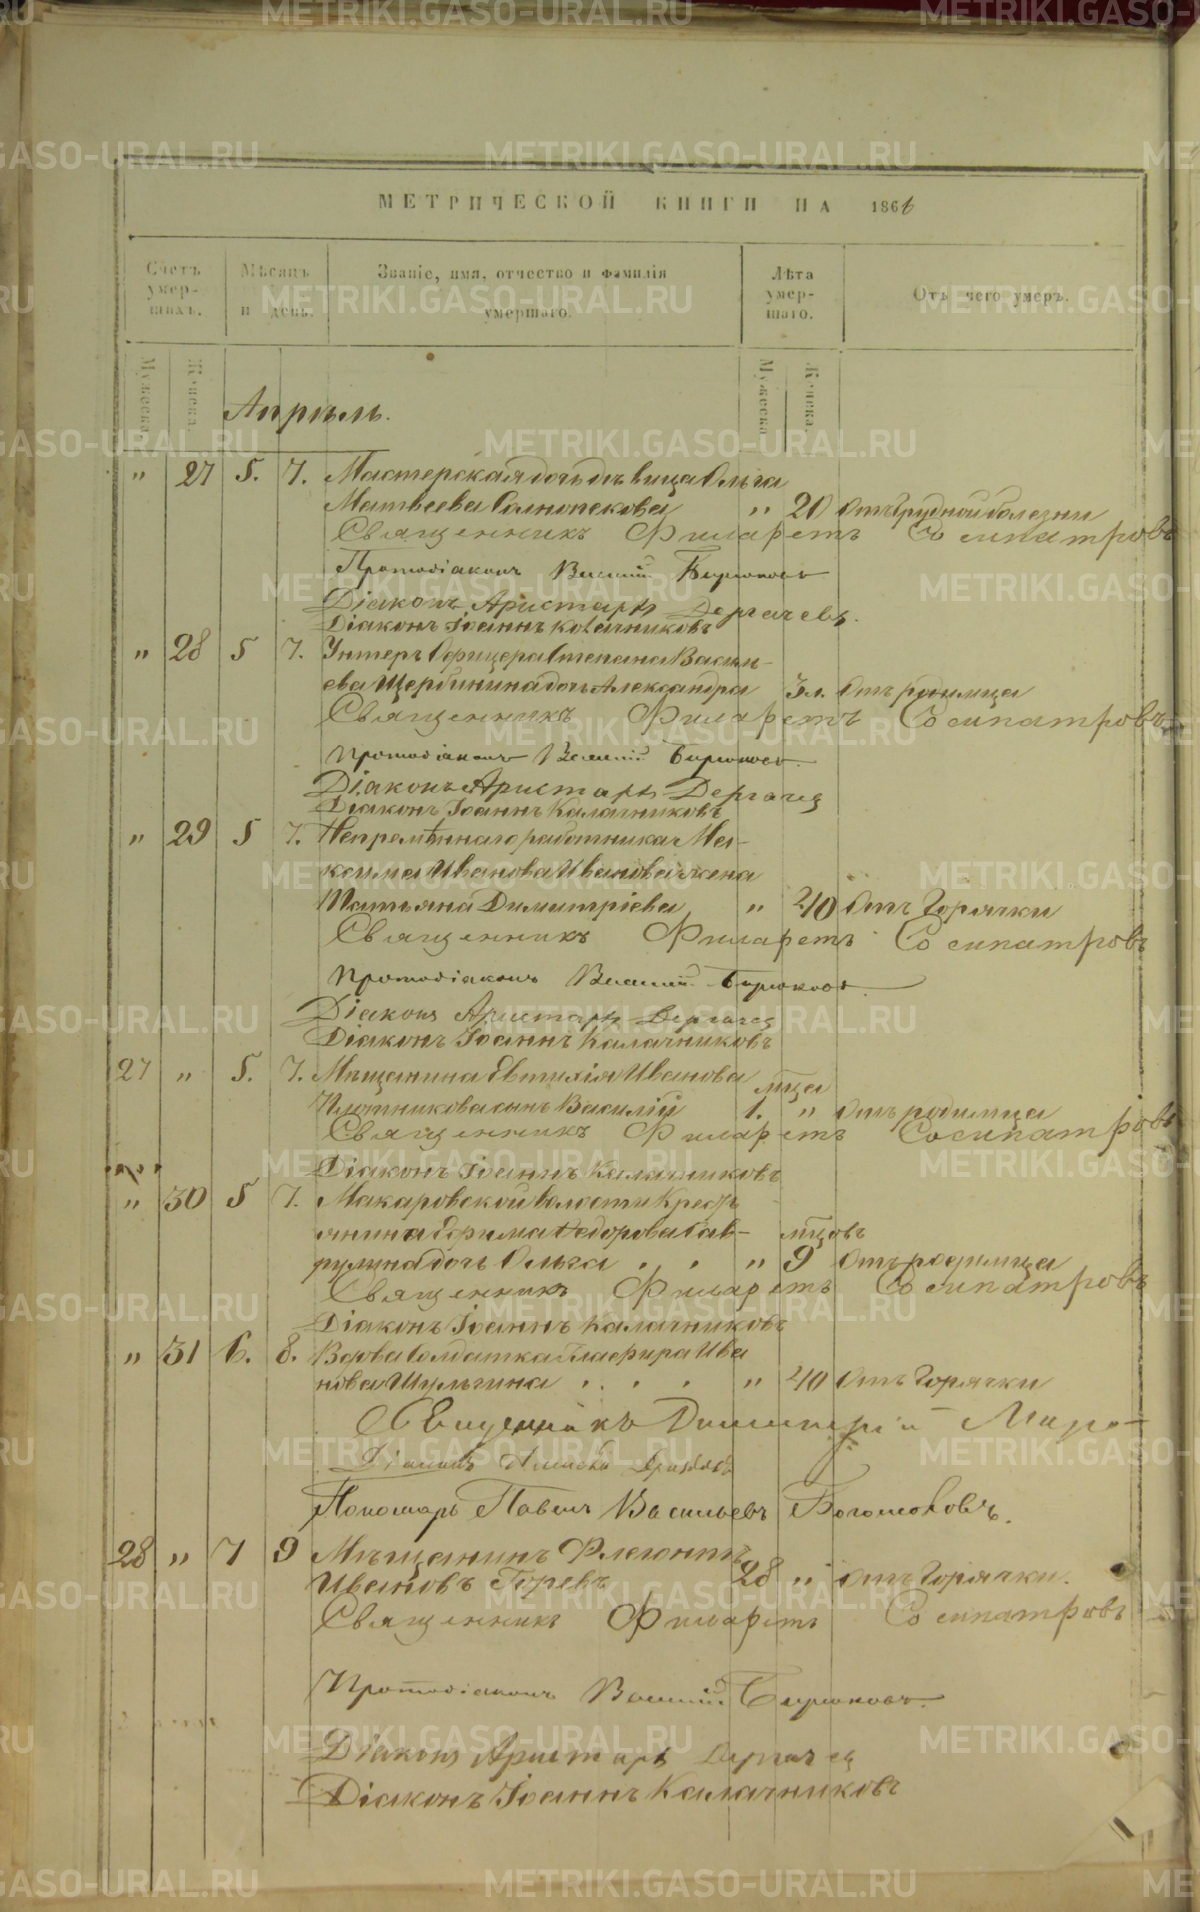 МЕТРИЧЕСКОЙ КНИГИ НА 1866
Счетъ умер-шихъ.
Мѣсяцъ и день.
Званіе, имя, отчество и фамилія умершаго.
Лѣта умер-шаго.
Отъ чего умеръ.
Мужеска. Женска. Мужеска. Женска.
Апрѣль.
" 27 5. 7. Мастерская дочь дѣвица Ольга
Матвеева " 20 Отъ грудной болезни
Священникъ Филаретъ Сосипатровъ
Протодіаконъ Василій Бирюковъ
Діаконъ Аристархъ Дергачевъ.
Діаконъ Іоаннъ Калачниковъ
" 28 5 7. Унтеръ Офицера Степана Василь-
ева Щербинина дочь Александра 3 л. Отъ родимца
Священникъ Филаретъ Сосипатровъ
Протодіаконъ Василій Бирюковъ.
Діаконъ Аристархъ Дергачев
Діаконъ Іоаннъ Калачниковъ
" 29 5 7. Непремѣннаго работника Ма-
ксима Иванова Иванова жена
Татьяна Димитріева " 40 Отъ Горячки
Священникъ Филаретъ Сосипатровъ
Протодіаконъ Василій Бирюковъ.
Діаконъ Аристархъ Дергачев
Діаконъ Іоаннъ Калачниковъ
27 " 5. 7. Мѣщанина Евтихія Иванова мѣца
Плотникова сынъ Василій 1. " Отъ родимца
Священникъ Филаретъ Сосипатровъ
Діаконъ Іоаннъ Калачниковъ
" 30 5 7. Макаровской волости Кресть
янина Ефима Федорова Гав- мѣцовъ
рилина дочь Ольга " 9 Отъ родимца
Священникъ Филаретъ Сосипатровъ
Діаконъ Іоаннъ Калачниковъ
" 31 6. 8. Вдова Солдатка Глафира Ива
нова Шульгина " 40 Отъ Горячки
Священникъ Димитрій
Діаконъ
Пономарь Павелъ Васильевъ Богомоловъ.
28 " 7 9 Мѣщанинъ Флегонтъ
Ивановъ Горевъ 28 " Отъ Горячки.
Священникъ Филаретъ Сосипатровъ
Протодіаконъ Василій Бирюковъ.
Діаконъ Аристархъ Дергачев
Діаконъ Іоаннъ Калачниковъ
METRIKI.GASO-URAL.RU